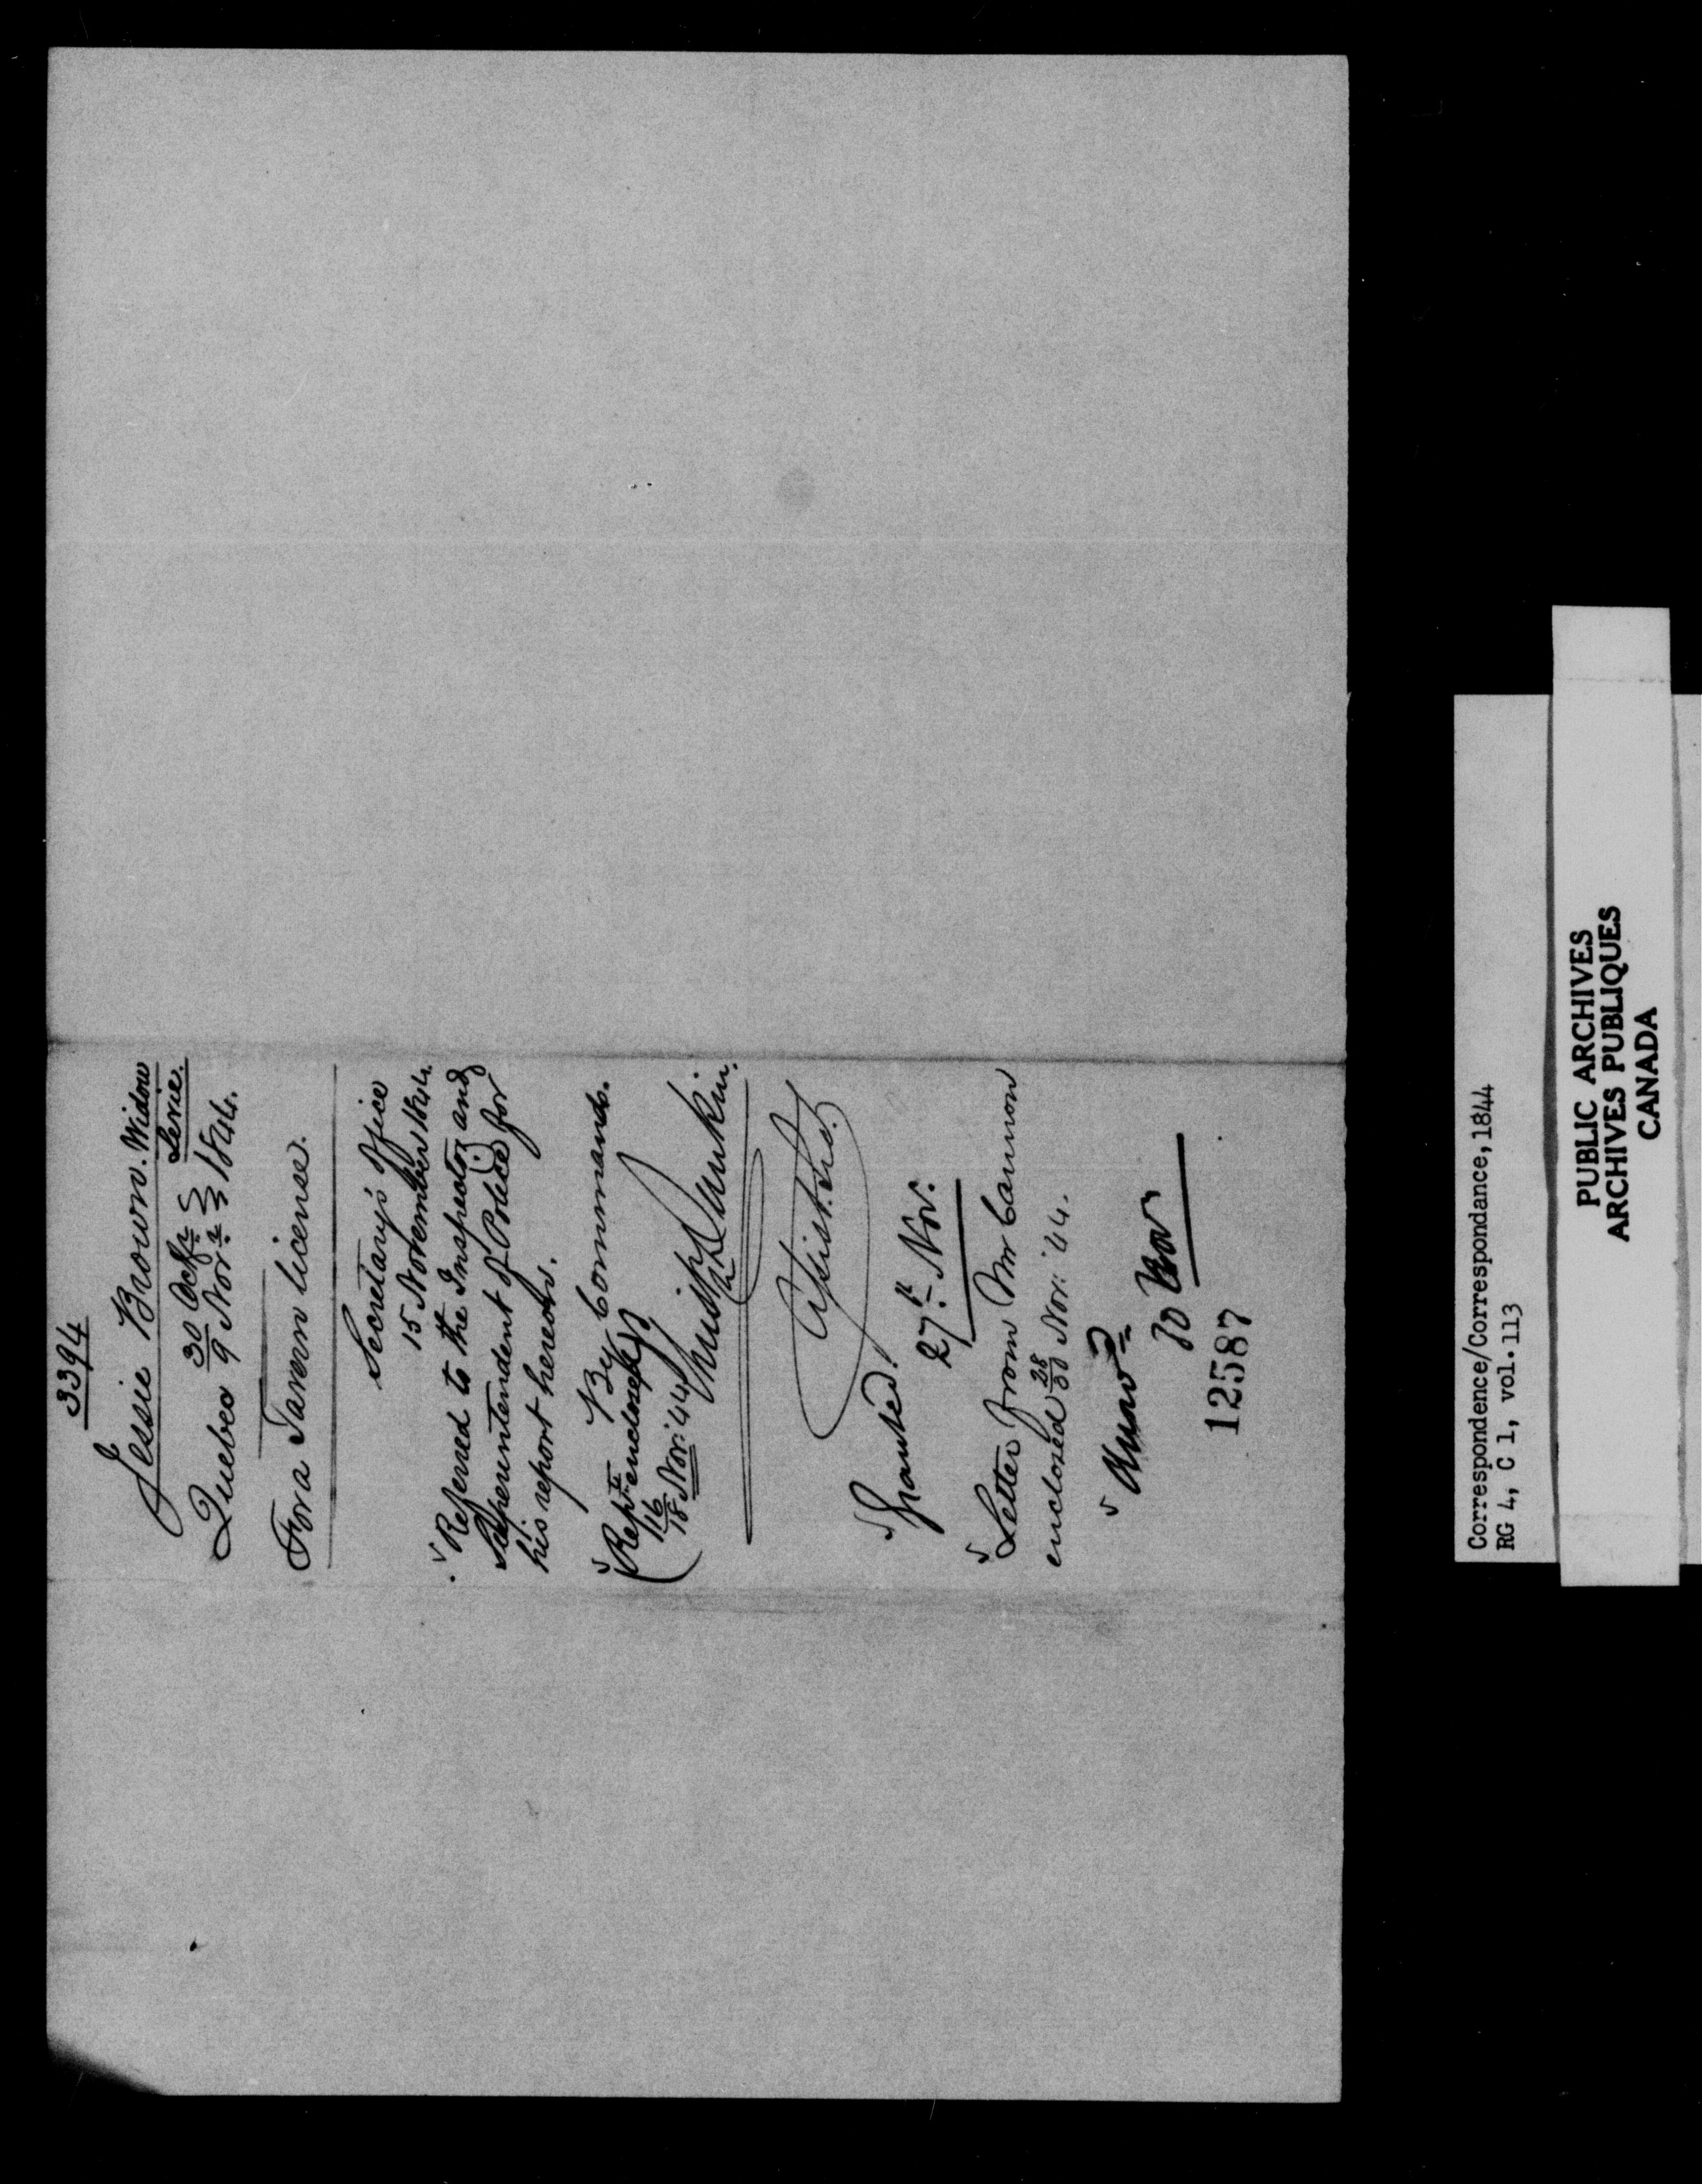 3394
Jessie Brown. Widow
Levie.
Quebec 30 Octr
9 Novr 1844.
For a Tavern license.
Secretary's Office
15 November 1844.
Referred to the Inspector and
Superintendent of Police for
his report hereon.
By Command.
(Rept enclosed
16/18 Nov: 44
Dunkin.
Asist. Sec.
Granted!
27th Nov.
Letter from Mr Cannon
enclosed 28/30 Nov: 44.
Answd
30 Nov
12587
Correspondence/Correspondance, 1844
RG 4, C 1, vol. 113
PUBLIC ARCHIVES
ARCHIVES PUBLIQUES
CANADA